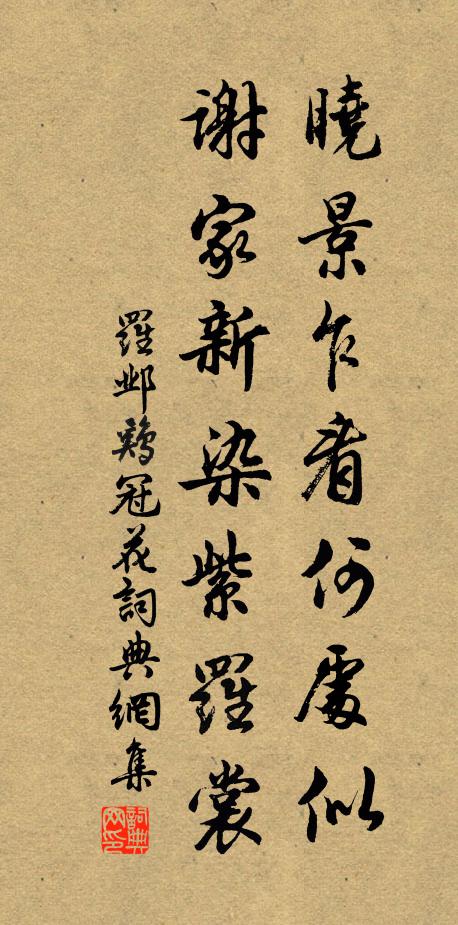 曉景乍看何處似
謝家新染紫羅裳
羅鄴鷄冠花詞典網集
詞典網印